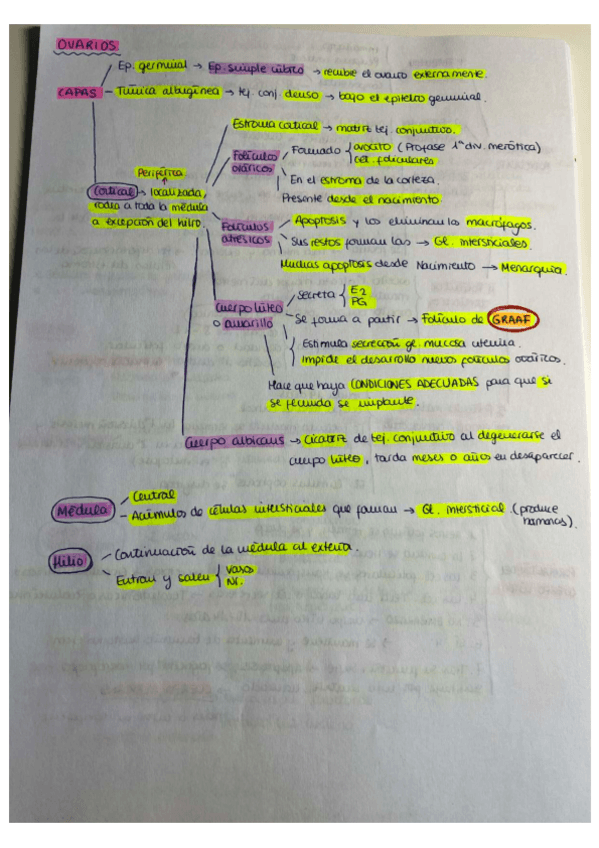 OVARIOS
Ep. germinal → Ep. simple cúbico → recubre el ovario externamente.
CAPAS - Túnica albugínea → tej. conj. denso → bajo el epitelio germinal.
Estroma cortical → matriz tej. conjuntivo.
Folículos ováricos
Formado { ovocito (Profase 1ª div. meiótica)
cel. foliculares
En el estroma de la corteza.
Presente desde el nacimiento.
Periférica
Cortical → localizada, rodea a toda la médula a excepción del hilio.
Folículos atrésicos
Apoptosis y los eliminan los macrófagos.
Sus restos forman las → Gl. intersticiales.
Muchas apoptosis desde Nacimiento → Menarquia.
Cuerpo lúteo o amarillo
secreta { E2
PG
Se forma a partir → Folículo de GRAAF
Estimula secreción gl. mucosa uterina.
Impide el desarrollo nuevos folículos ováricos.
Hace que haya CONDICIONES ADECUADAS para que si
se fecunda se implante.
Cuerpo albicans → Cicatriz de tej. conjuntivo al degenerarse el
cuerpo lúteo, tarda meses o años en desaparecer.
Médula
Central
- Acúmulos de células intersticiales que forman → Gl. intersticial (produce
hormonas).
Hilio
Continuación de la médula al exterior.
Entran y salen { vasos
Nr.